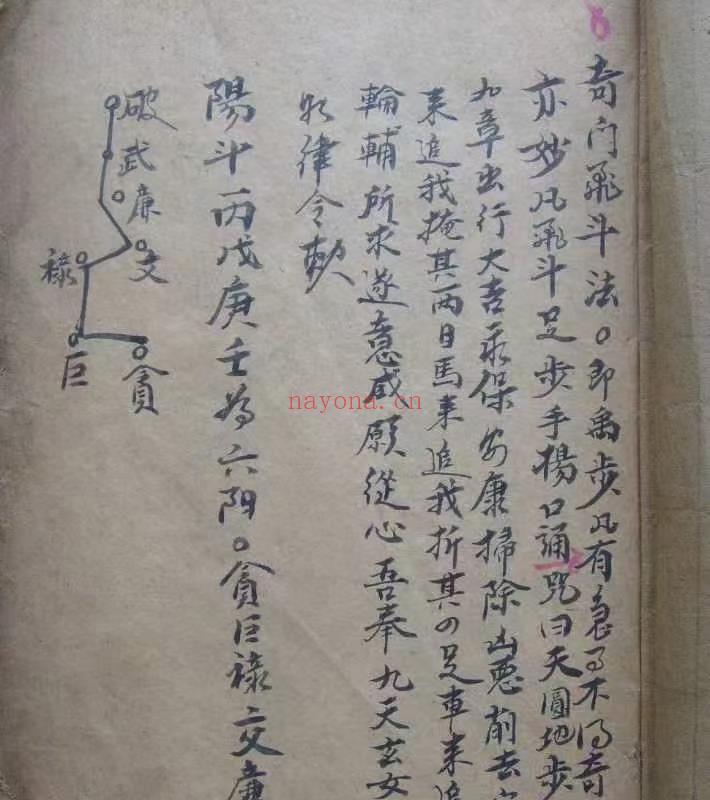 奇门飛斗法。即禹步凡有急事不得奇
亦妙凡飛斗足步手揚口誦咒曰天圓地步
九章出行大吉永保安康掃除凶惡前去
来追我掩其兩目馬来追我折其四足車来追
輪輔所求遂意咸願從心吾奉九天玄女
律令勅
陽斗丙戊庚壬為六陽。貪巨祿文廉
破武廉文
祿
巨
貪
nayona.cn